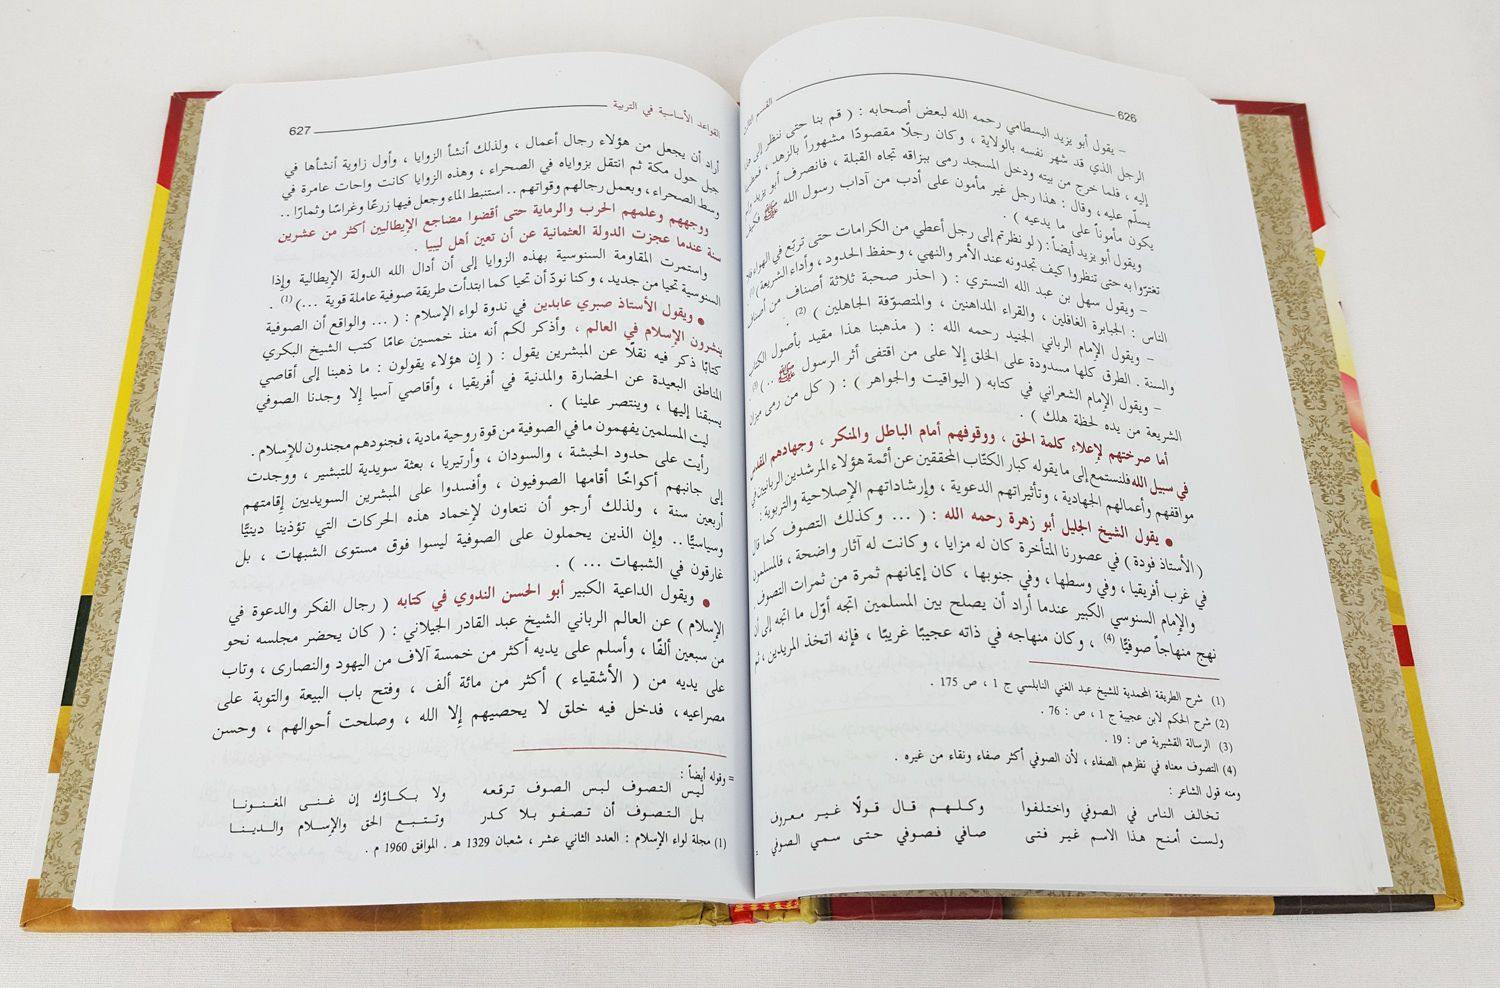 626
القسم الثالث
– يقول أبو يزيد البسطامي رحمه الله لبعض أصحابه : ( قم بنا حتى ننظر إلى
الرجل الذي قد شهر نفسه بالولاية ، وكان رجلًا مقصودًا مشهوراً بالزهد ،
إليه ، فلما خرج من بيته ودخل المسجد رمى ببزاقه تجاه القبلة ، فانصرف أبو يزيد ولم
يسلّم عليه ، وقال : هذا رجل غير مأمون على أدب من آداب رسول الله ﷺ فكيف
يكون مأموناً على ما يدعيه ) .
ويقول أبو يزيد أيضاً : ( لو نظرتم إلى رجل أعطي من الكرامات حتى تربّع في الهواء فلا
تغترّوا به حتى تنظروا كيف تجدونه عند الأمر والنهي ، وحفظ الحدود ، وأداء الشريعة )
– ويقول سهل بن عبد الله التستري : ( احذر صحبة ثلاثة أصناف من أصناف
الناس : الجبابرة الغافلين ، والقراء المداهنين ، والمتصوّفة الجاهلين ) (2) .
– ويقول الإمام الرباني الجنيد رحمه الله : ( مذهبنا هذا مقيد بأصول الكتاب
والسنة . الطرق كلها مسدودة على الخلق إلا على من اقتفى أثر الرسول ﷺ .. ) (3)
– ويقول الإمام الشعراني في كتابه ( اليواقيت والجواهر ) : ( كل من رمى ميزان
الشريعة من يده لحظة هلك ) .
أما صرختهم لإعلاء كلمة الحق ، ووقوفهم أمام الباطل والمنكر ، وجهادهم المقدس
في سبيل الله فلنستمع إلى ما يقوله كبار الكتّاب المحققين عن أئمة هؤلاء المرشدين الربانيين في
مواقفهم وأعمالهم الجهادية ، وتأثيراتهم الدعوية ، وإرشاداتهم الإصلاحية والتربوية :
● يقول الشيخ الجليل أبو زهرة رحمه الله : ( ... وكذلك التصوف كما قال
( الأستاذ فودة ) في عصورنا المتأخرة كان له مزايا ، وكانت له آثار واضحة ، فالمسلمون
في غرب أفريقيا ، وفي وسطها ، وفي جنوبها ، كان إيمانهم ثمرة من ثمرات التصوف .
والإمام السنوسي الكبير عندما أراد أن يصلح بين المسلمين اتجه أوّل ما اتجه إلى أن
نهج منهاجاً صوفيًّا (4) ، وكان منهاجه في ذاته عجيبًا غريبًا ، فإنه اتخذ المريدين ، ثم
(1) شرح الطريقة المحمدية للشيخ عبد الغني النابلسي ج 1 ، ص 175 .
(2) شرح الحكم لابن عجيبة ج 1 ، ص : 76 .
(3) الرسالة القشيرية ص : 19 .
(4) التصوف معناه في نظرهم الصفاء ، لأن الصوفي أكثر صفاء ونقاء من غيره .
ومنه قول الشاعر :
تخالف الناس في الصوفي واختلفوا وكلهم قال قولًا غير معروف
ولست أمنح هذا الاسم غير فتى صافي فصوفي حتى سمي الصوفي =
القواعد الأساسية في التربية
627
أراد أن يجعل من هؤلاء رجال أعمال ، ولذلك أنشأ الزوايا ، وأول زاوية أنشأها في
جبل حول مكة ثم انتقل بزواياه في الصحراء ، وهذه الزوايا كانت واحات عامرة في
وسط الصحراء ، وبعمل رجالهم وقواتهم .. استنبط الماء وجعل فيها زرعًا وغراسًا وثمارًا ..
ووجههم وعلمهم الحرب والرماية حتى أقضوا مضاجع الإيطاليين أكثر من عشرين
سنة عندما عجزت الدولة العثمانية عن أن تعين أهل ليبيا .
واستمرت المقاومة السنوسية بهذه الزوايا إلى أن أدال الله الدولة الإيطالية وإذا
السنوسية تحيا من جديد ، وكنا نودّ أن تحيا كما ابتدأت طريقة صوفية عاملة قوية ...) (1) .
● ويقول الأستاذ صبري عابدين في ندوة لواء الإسلام : ( ... والواقع أن الصوفية
ينشرون الإسلام في العالم ، وأذكر لكم أنه منذ خمسين عامًا كتب الشيخ البكري
كتابًا ذكر فيه نقلًا عن المبشرين يقول : ( إن هؤلاء يقولون : ما ذهبنا إلى أقاصي
المناطق البعيدة عن الحضارة والمدنية في أفريقيا ، وأقاصي آسيا إلا وجدنا الصوفي
يسبقنا إليها ، وينتصر علينا ) .
ليت المسلمين يفهمون ما في الصوفية من قوة روحية مادية ، فجنودهم مجندون للإسلام .
رأيت على حدود الحبشة ، والسودان ، وأرتيريا ، بعثة سويدية للتبشير ، ووجدت
إلى جانبهم أكواخًا أقامها الصوفيون ، وأفسدوا على المبشرين السويديين إقامتهم
أربعين سنة ، ولذلك أرجو أن نتعاون لإخماد هذه الحركات التي تؤذينا دينيًّا
وسياسيًّا .. وإن الذين يحملون على الصوفية ليسوا فوق مستوى الشبهات ، بل
غارقون في الشبهات ... ) .
● ويقول الداعية الكبير أبو الحسن الندوي في كتابه ( رجال الفكر والدعوة في
الإسلام ) عن العالم الرباني الشيخ عبد القادر الجيلاني : ( كان يحضر مجلسه نحو
من سبعين ألفًا ، وأسلم على يديه أكثر من خمسة آلاف من اليهود والنصارى ، وتاب
على يديه من ( الأشقياء ) أكثر من مائة ألف ، وفتح باب البيعة والتوبة على
مصراعيه ، فدخل فيه خلق لا يحصيهم إلا الله ، وصلحت أحوالهم ، وحسن
= وقوله أيضاً :
ليس التصوف لبس الصوف ترقعه ولا بكاؤك إن غنى المغنونا
بل التصوف أن تصفو بلا كدر وتتبع الحق والإسلام والدينا
(1) مجلة لواء الإسلام : العدد الثاني عشر ، شعبان 1329 هـ . الموافق 1960 م .